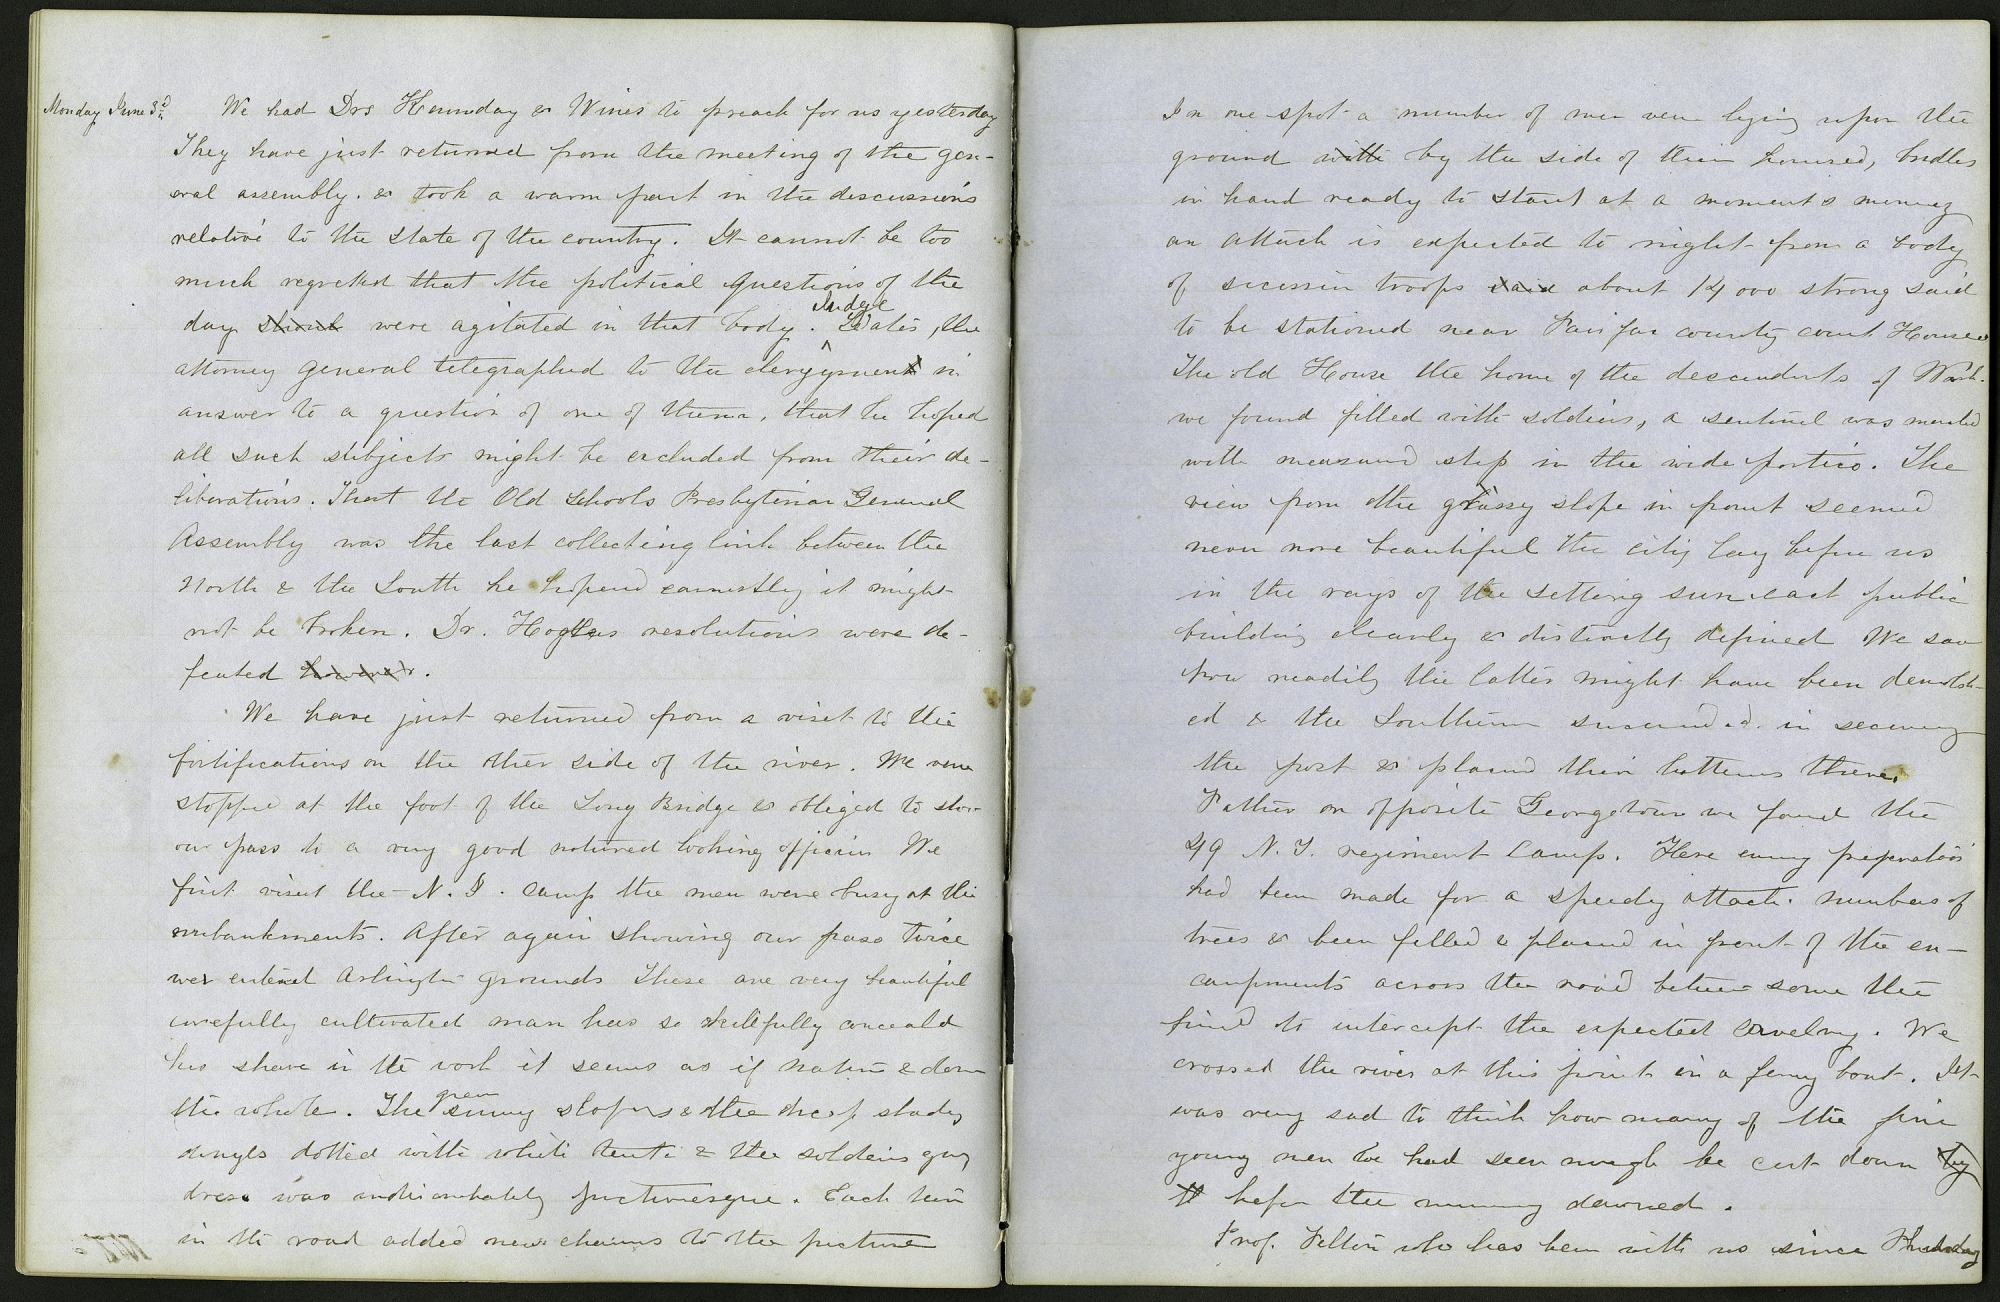 Monday June 3d
We had Drs Kennnday & Wines to preach for us yesterday
They have just returned from the meeting of the gen-
eral assembly. & took a warm part in the discussions
relative to the state of the country. It cannot be too
much regretted that the political questions of the
day should were agitated in that body. Judge Bates, the
attorney general telegraphed to the clergymen in
answer to a question of one of them, that he hoped
all such subjects might be excluded from their de-
liberations. That the Old Schools Presbyterian General
Assembly was the last collecting link between the
North & the South he hoped earnestly it might
not be broken. Dr. Hodges resolutions were de-
feated however.
We have just returned from a visit to the
fortifications on the other side of the river. We were
stopped at the foot of the Long Bridge & obliged to show
our pass to a very good natured looking officer We
first visit the N. J. camp the men were busy at the
embankments. After again showing our pass twice
we entered Arlington grounds These are very beautiful
carefully cultivated man has so skillfully conceald
his share in the work it seems as if nature & done
the whole. The green sunny slopes & the deep shady
dingles dotted with white tents & the soldiers gay
dress was picturesque. Each turn
in the road added new charms to the picture
In one spot a number of men were lying upon the
ground with by the side of their horses, bridles
in hand ready to start at a moments
an attack is expected to night from a body
of secession troops said about 14 000 strong said
to be stationed near Fairfax county court House
The old House the home of the descendents of Wash.
we found filled with soldiers, a sentinel was
with measured step in the wide portico. The
view from the grassy slope in front seemed
never more beautiful the city lay before us
in the rays of the setting sun each public
building clearly & distinctly defined We saw
how readily the latter might have been demolish-
ed & the Southern succeeded in securing
the post & placed their batteries there.
Father on opposite Georgetown we found the
49 N. Y. regiment camp. Here every preparation
had been made for a speedy attack. numbers of
trees & been felled & placed in front of the en-
campments across the road between some the
find to intercept the expected cavelry. We
crossed the river at this point in a ferry boat. It
was very sad to think how many of the fine
young men we had seen might be cut down by
before the morning dawned.
Prof. Felton who has been with us since Thursday